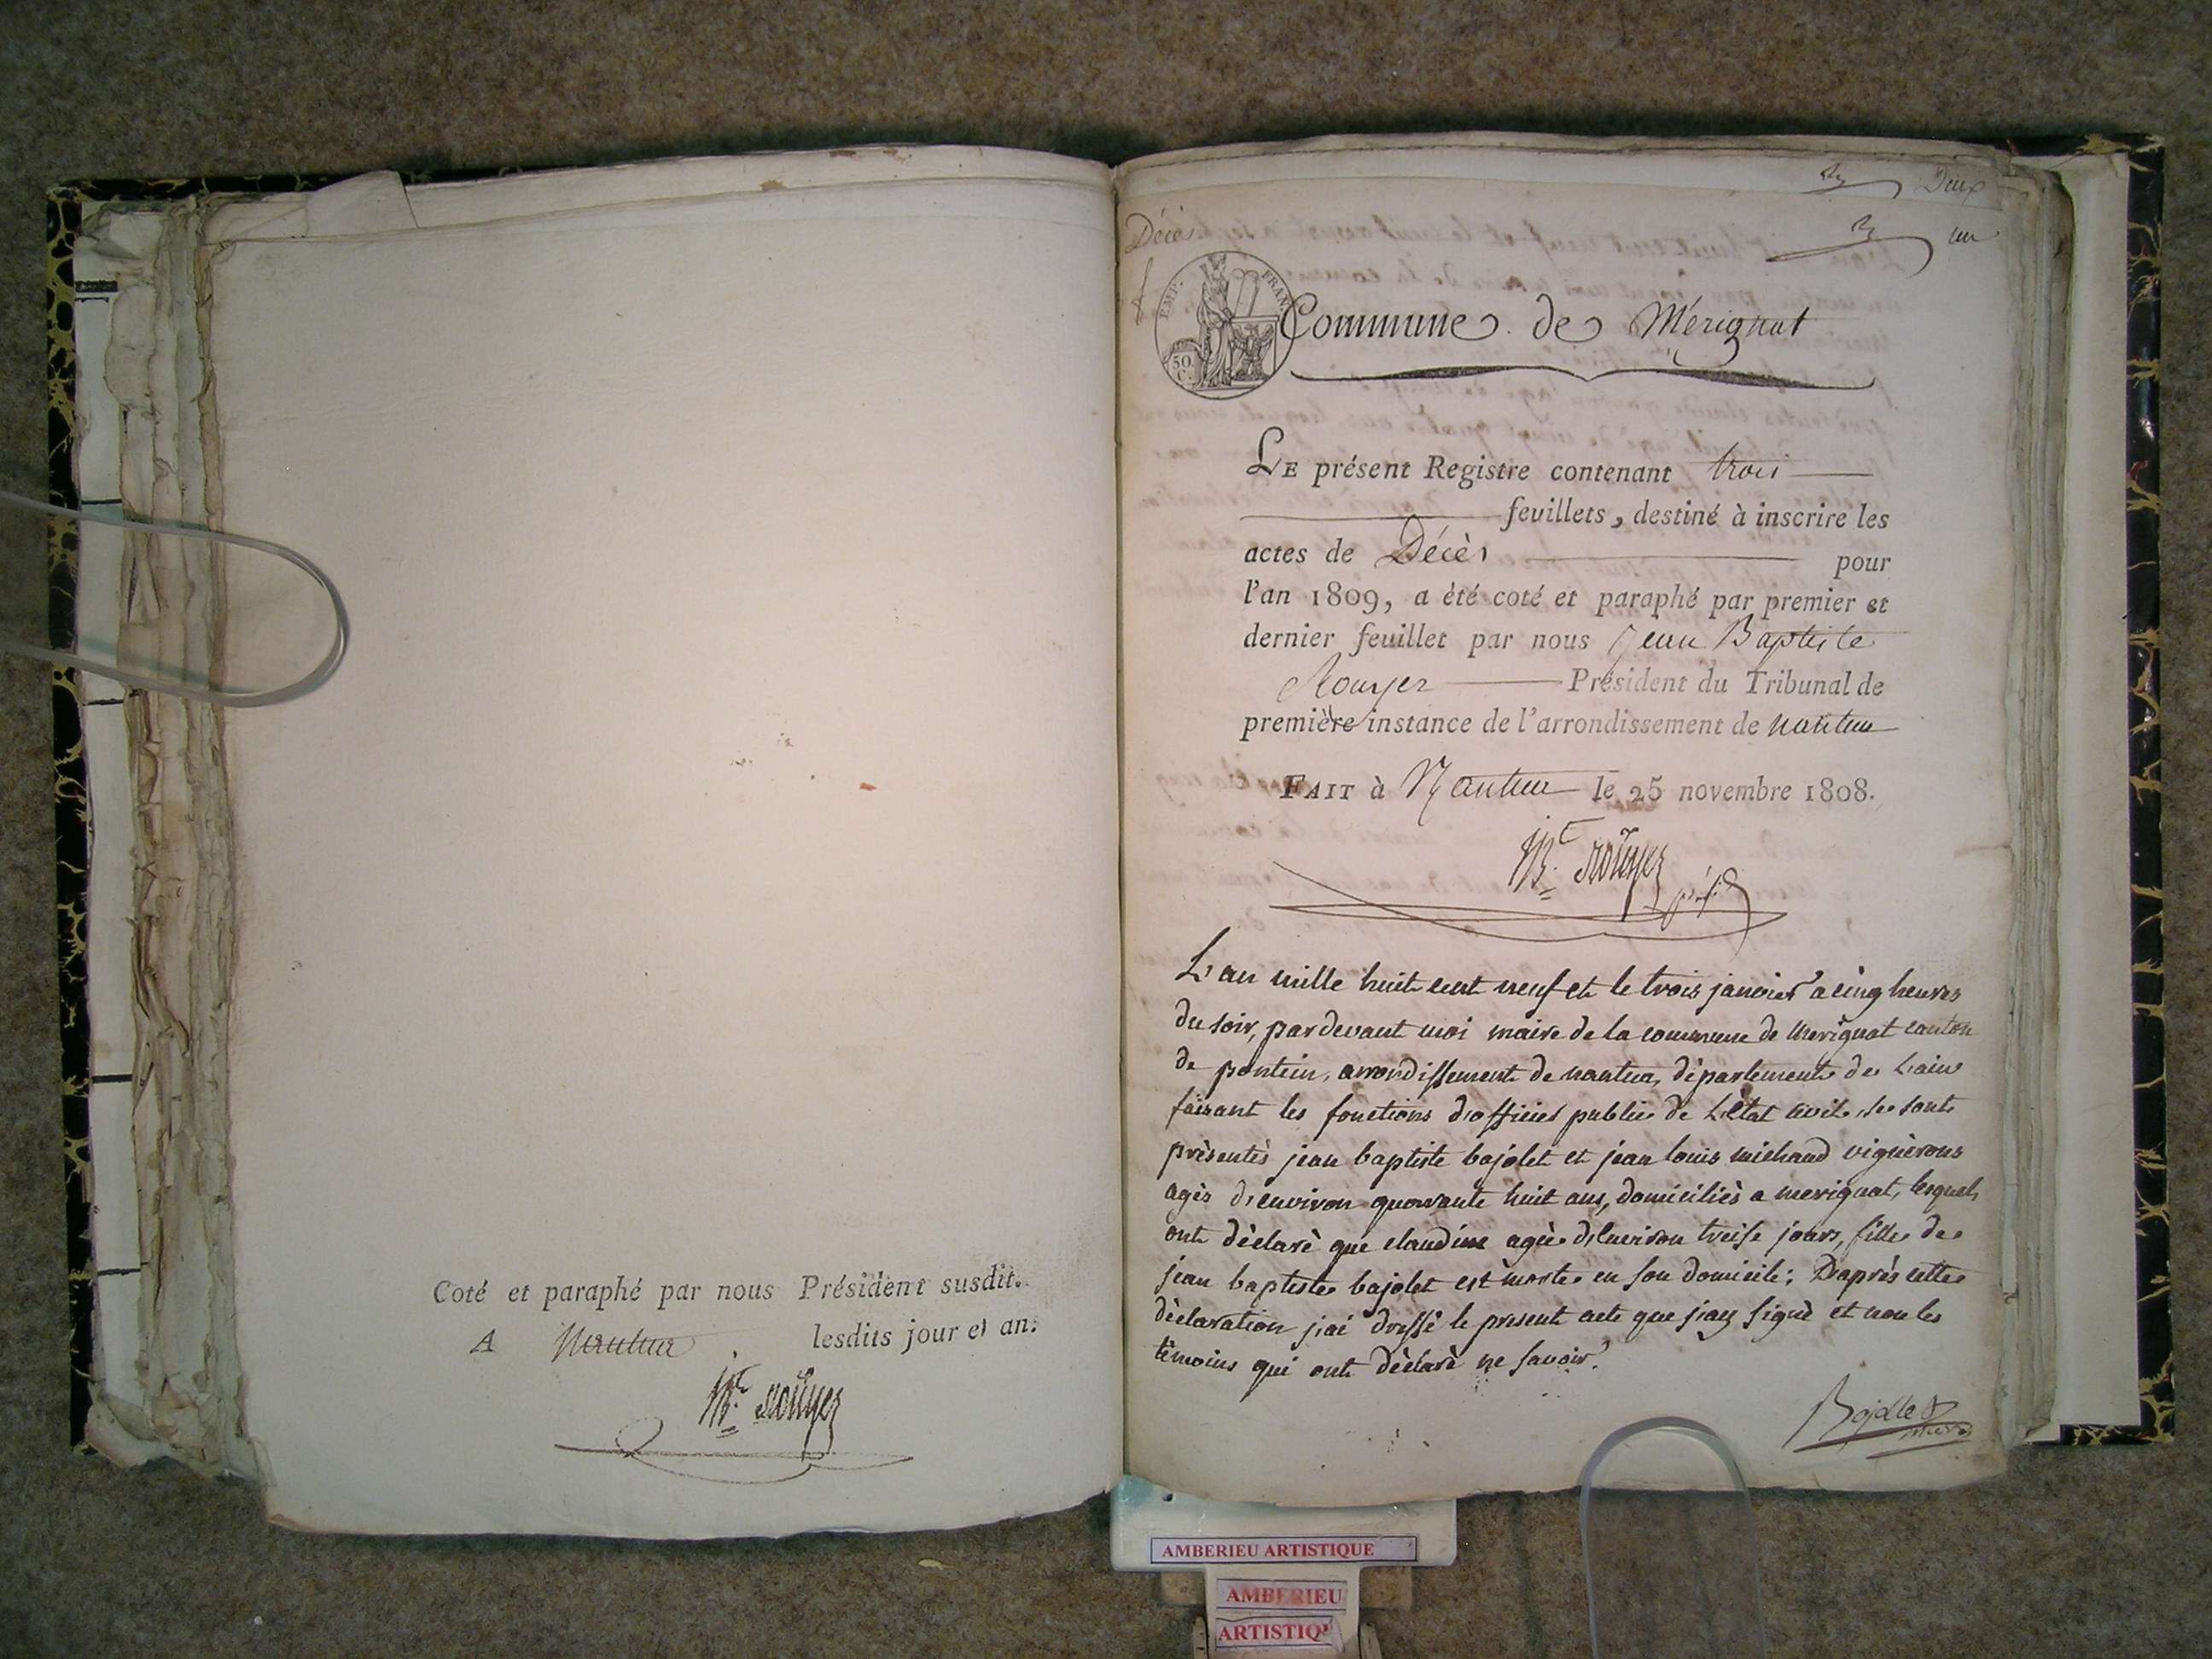 Coté et paraphé par nous Président susdit.
A Nantua lesdits jour et an.
Bte. rouyer
Deux
un
Décès
EMP. FRAN
50
C.
Commune de Mérignat
LE présent Registre contenant trois
feuillets, destiné à inscrire les
actes de Décès pour
l'an 1809, a été coté et paraphé par premier et
dernier feuillet par nous Jean Baptiste
Rouyer Président du Tribunal de
première instance de l'arrondissement de nantua
FAIT à Nantua le 25 novembre 1808.
Bte. rouyer
L'an mille huit cent neuf et le trois janvier a cinq heures
du soir, pardevant moi maire de la commune de merignat canton
de pontein, arrondissement de nantua, département de Lain
faisant les fonctions d'officier public de L'état civil, se sont
présentés jean baptiste bajolet et jean louis michaud vignèrons
agés d'environ quarante huit ans, domiciliès a merignat, lesquels
ont dèclarè que claudine agée d'environ treise jours, fille de
jean baptiste bajolet est morte en son domicile; D'après cette
dèclaration j'ai dressé le present acte que j'ay signè et non les
tèmoins qui ont dèclarè ne savoir.
Bojollet
maire
AMBERIEU ARTISTIQUE
AMBERIEU
ARTISTIQ